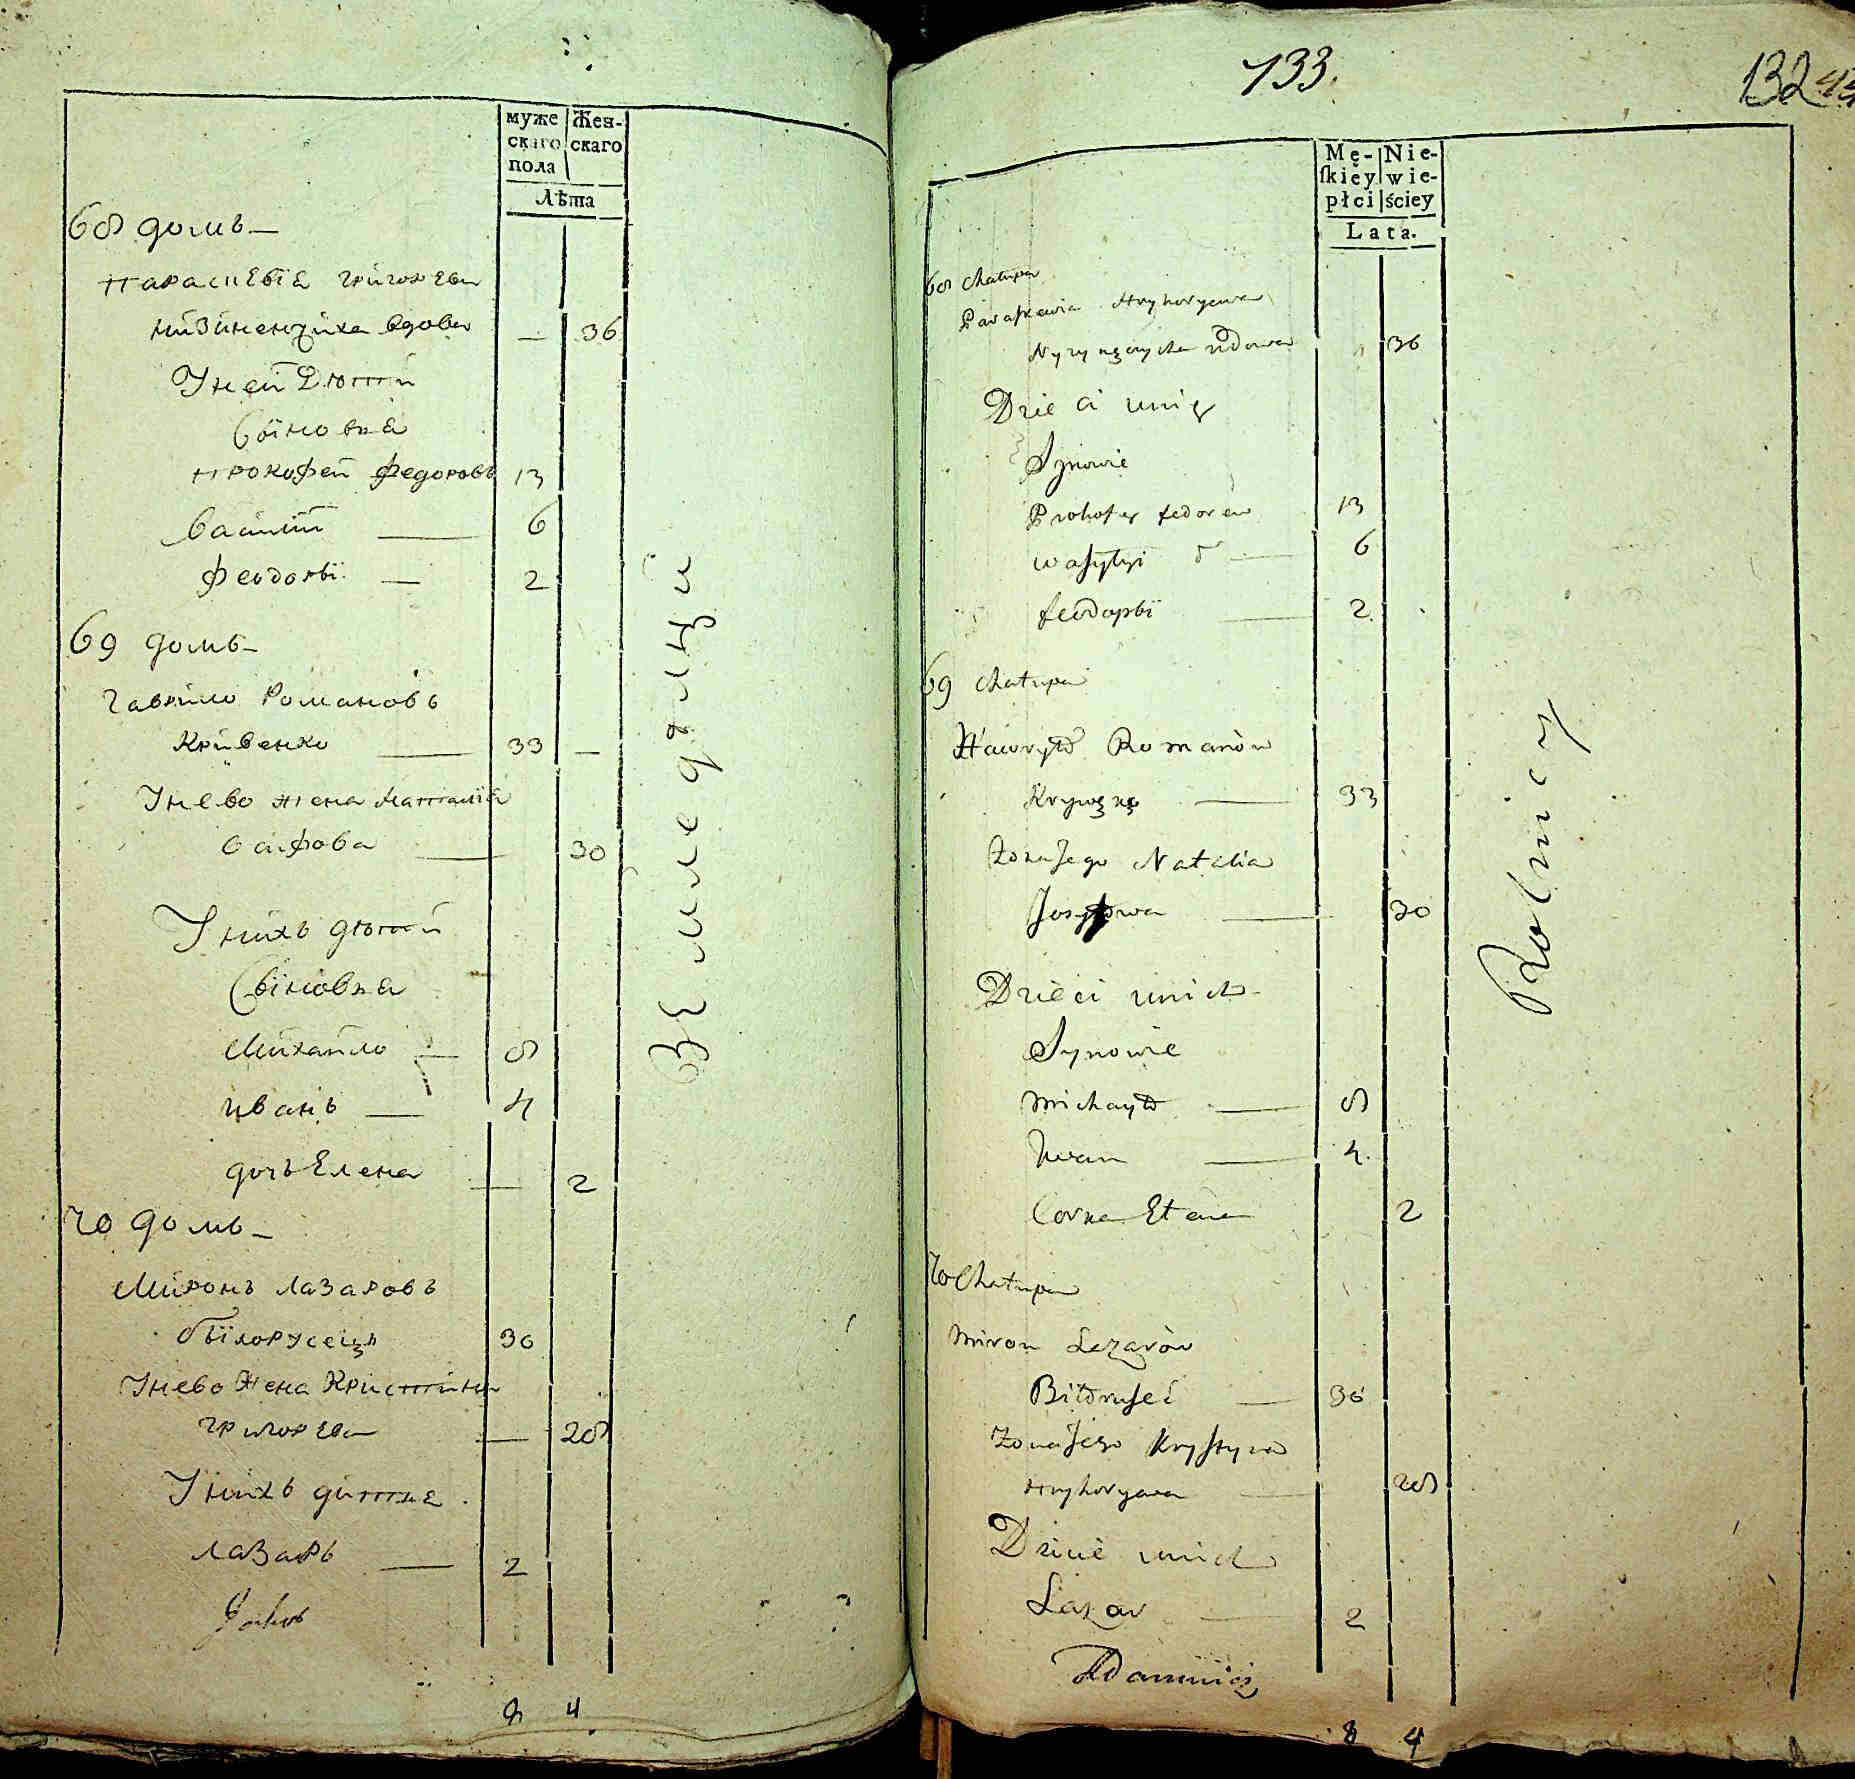 муже
скаго
пола
Жен-
скаго
Лѣта
68 домъ
Параскевіа григорева
низиненчиха вдова — 36
Унеи Дѣтѣй
Сыновъя
Прокофей Федоровъ 13
Василій — 6
Феодосій — 2
69 домъ
Гаврило Романовъ
Кривенко — 33 —
Унево жена Наталиа
Осифова — 30
Унихъ дѣтѣй
Сыновъя
Михайло — 8
иванъ — 4
дочь Елена — 2
70 домъ
Миронъ Лазаровъ
былорусецъ 30
Унево жена Кристина
григорева — 28
Унихъ дитяе
Лазаръ — 2
9 4
Земледѣлци
133.
132
Mę-
ſkiey
płci
Nie-
wie-
ściey
Lata.
68 Chatupa
Paraskewia Hryhoryewa
udowa 36
Dzieci unię
Synowie
Prokofey fedorów 13
wasylyi — 6
— 2
69 Chatupa
Hawryło Romanów
Krywęnko — 33
Zona Jego Natalia
Josypowa — 30
Dzieci unich
Synowie
Michayło — 8
Iwan — 4
Corka Elena 2
70 Chatupa
Miron Lazarów
Biłoruseć — 30
Zona Jego Krystyna
Hryhoryewa — 28
Dzieci unich
Lazar — 2
8 4
Rolnicy